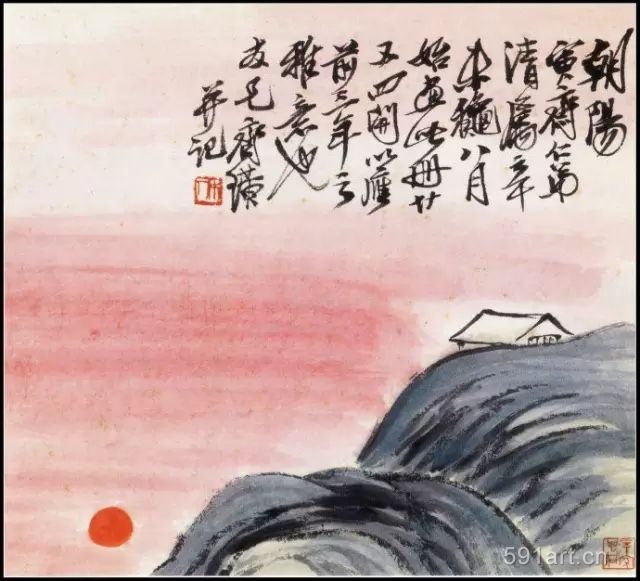 朝陽
寅齋仁弟
清屬辛
未龝八月
始畫此冊廿
又四開以應
前三年之
雅意也
友兄齊璜
并記
木人
591art.cn